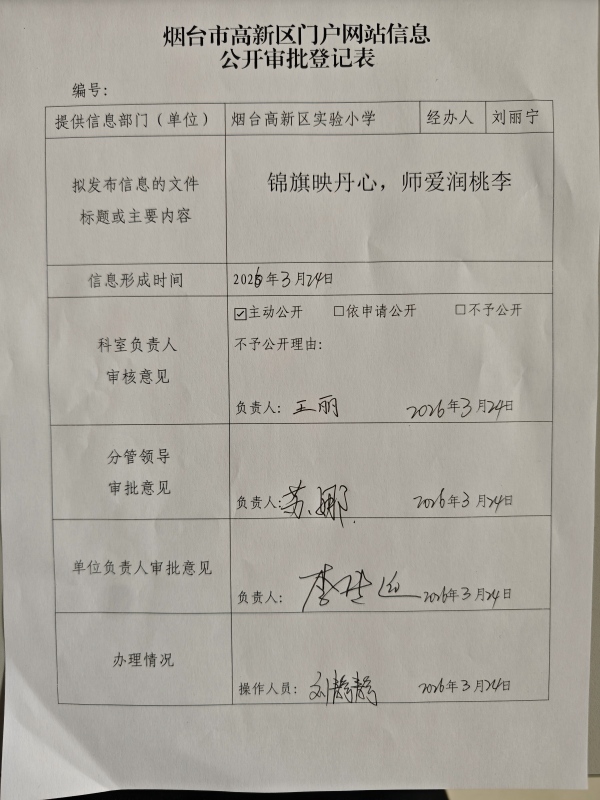 烟台市高新区门户网站信息
公开审批登记表
编号:
提供信息部门（单位） 烟台高新区实验小学 经办人 刘丽宁
拟发布信息的文件
标题或主要内容
锦旗映丹心，师爱润桃李
信息形成时间 2026年3月24日
科室负责人
审核意见
☑主动公开 □依申请公开 □不予公开
不予公开理由:
负责人: 王丽 2026年3月24日
分管领导
审批意见
负责人: 苏娜 2026年3月24日
单位负责人审批意见
负责人: 李 2026年3月24日
办理情况
操作人员: 刘静静 2026年3月24日